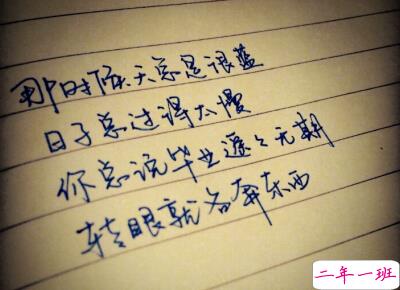 那时候天总是很蓝
日子总过得太慢
你总说毕业遥々无期
转眼就各奔东西
二年一班